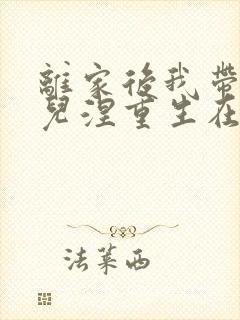 離家後我帶
兒涅重生在
法萊西